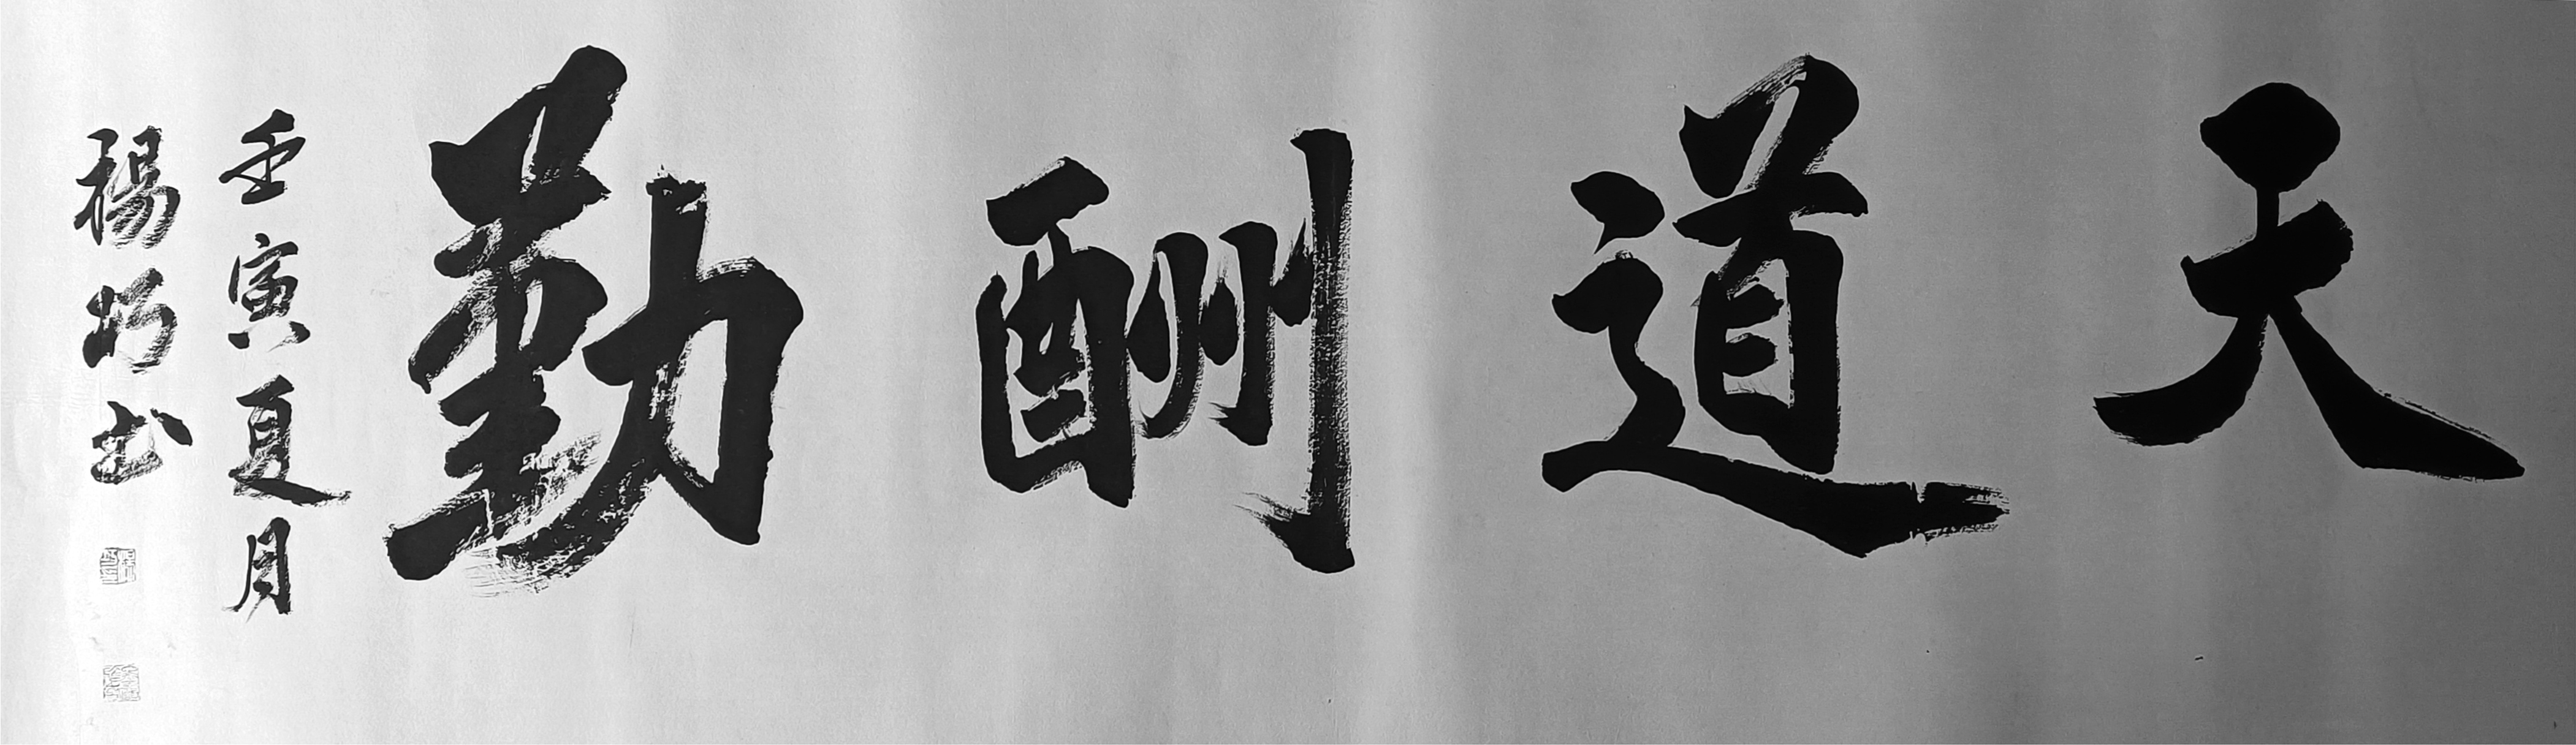 天道酬勤
壬寅夏月
楊巧书